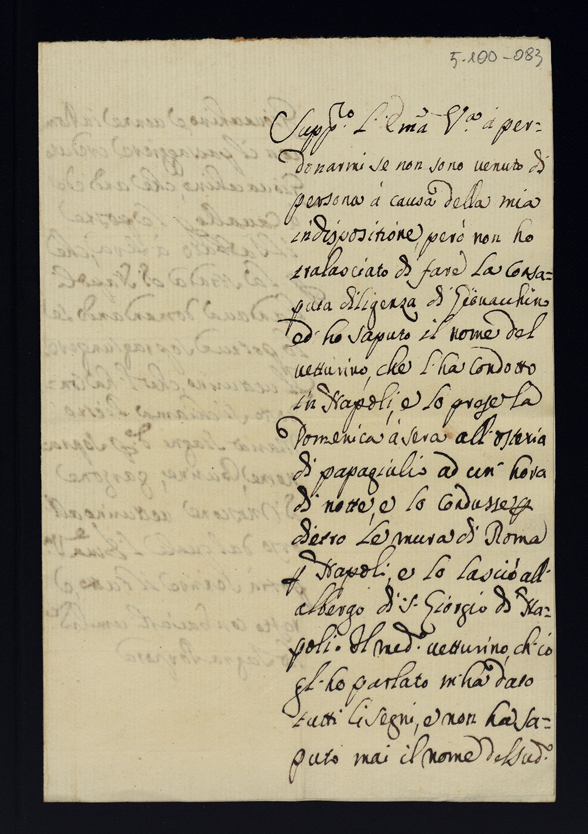 5-100-083
Supp.to L'Em.a V.a à per=
donarmi se non sono venuto di
persona à causa della mia
indispositione, però non ho
tralasciato di fare la consa=
puta diligenza di Giovacchino
ed ho saputo il nome del
vetturino, che l'ha condotto
in Napoli, e lo prese la
Domenica à sera all'osteria
di papagiulio ad un' hora
di notte, e lo condusse p
dietro le mura di Roma
p Napoli, e lo lasciò all'
albergo di S. Giorgio di Na=
poli. Il med.o vetturino, ch'io
gl'ho parlato m'ha dato
tutti li segni, e non ha sa=
puto mai il nome del sud.o